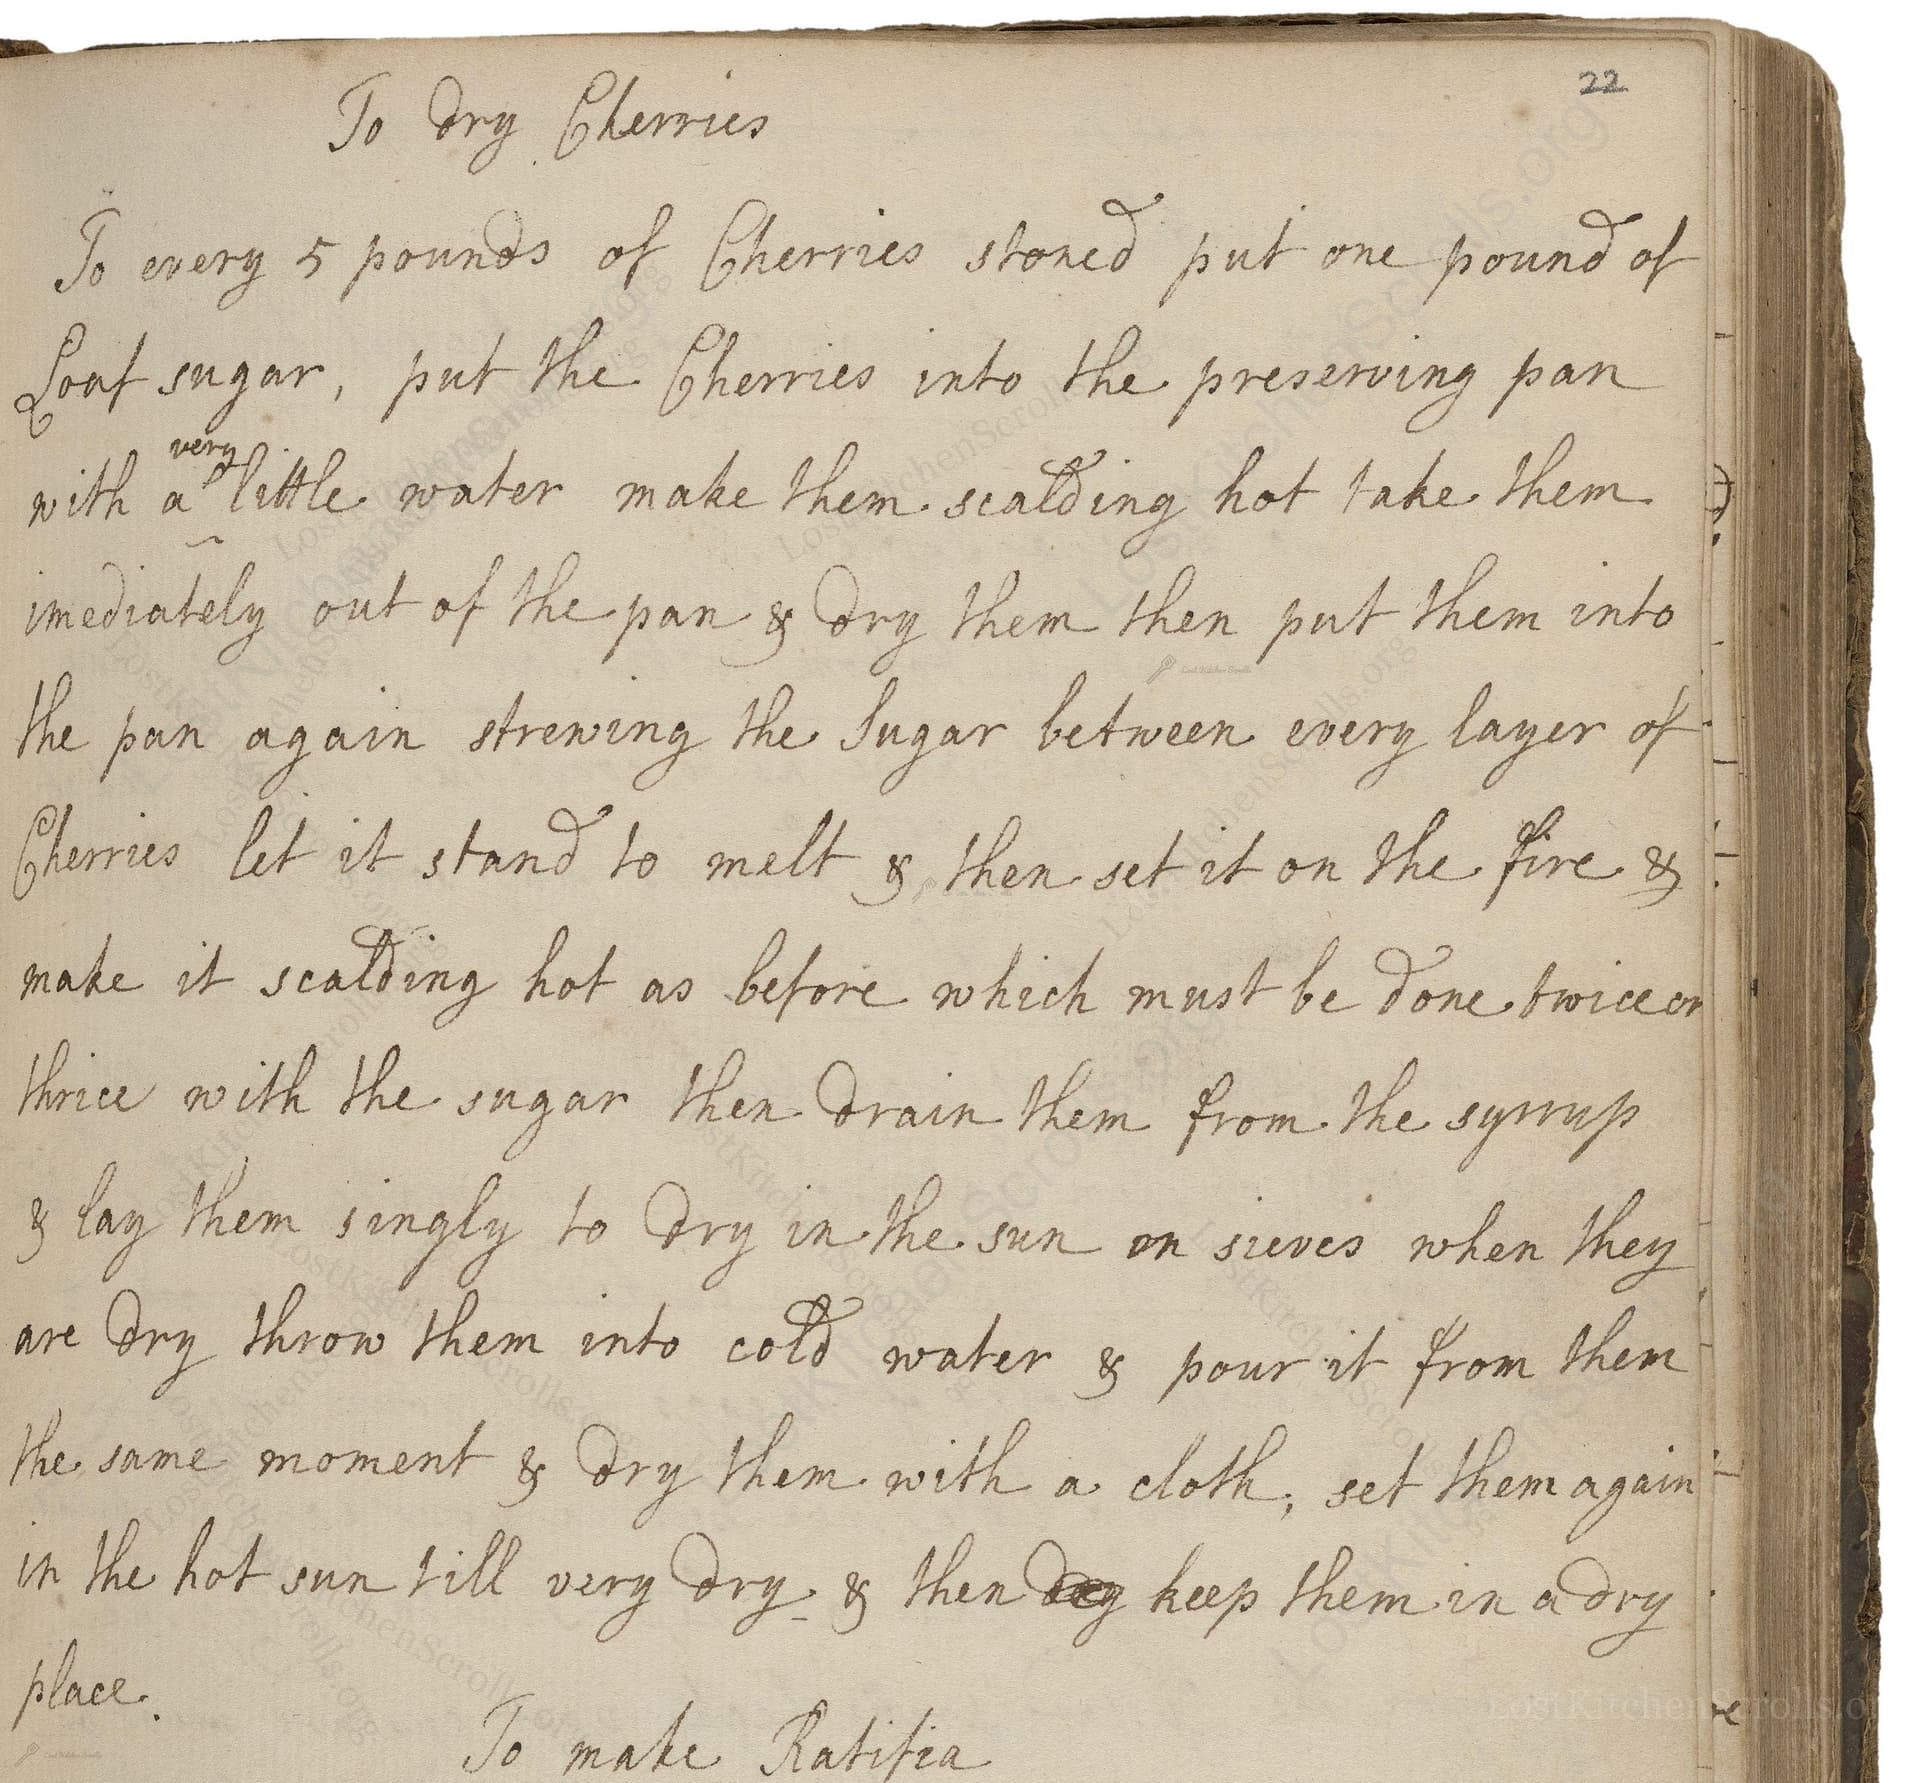 22
To dry Cherries
To every 5 pounds of Cherries stoned put one pound of
Loaf sugar, put the Cherries into the preserving pan
with a very little water make them scalding hot take them
imediately out of the pan & dry them then put them into
the pan again strewing the sugar between every layer of
Cherries let it stand to melt & then set it on the fire &
make it scalding hot as before which must be done twice or
thrice with the sugar then drain them from the syrrup
& lay them singly to dry in the sun on sieves when they
are dry throw them into cold water & pour it from them
the same moment & dry them with a cloth, set them again
in the hot sun till very dry & then keep them in a dry
place.
To make Ratifia
LostKitchenScrolls.org